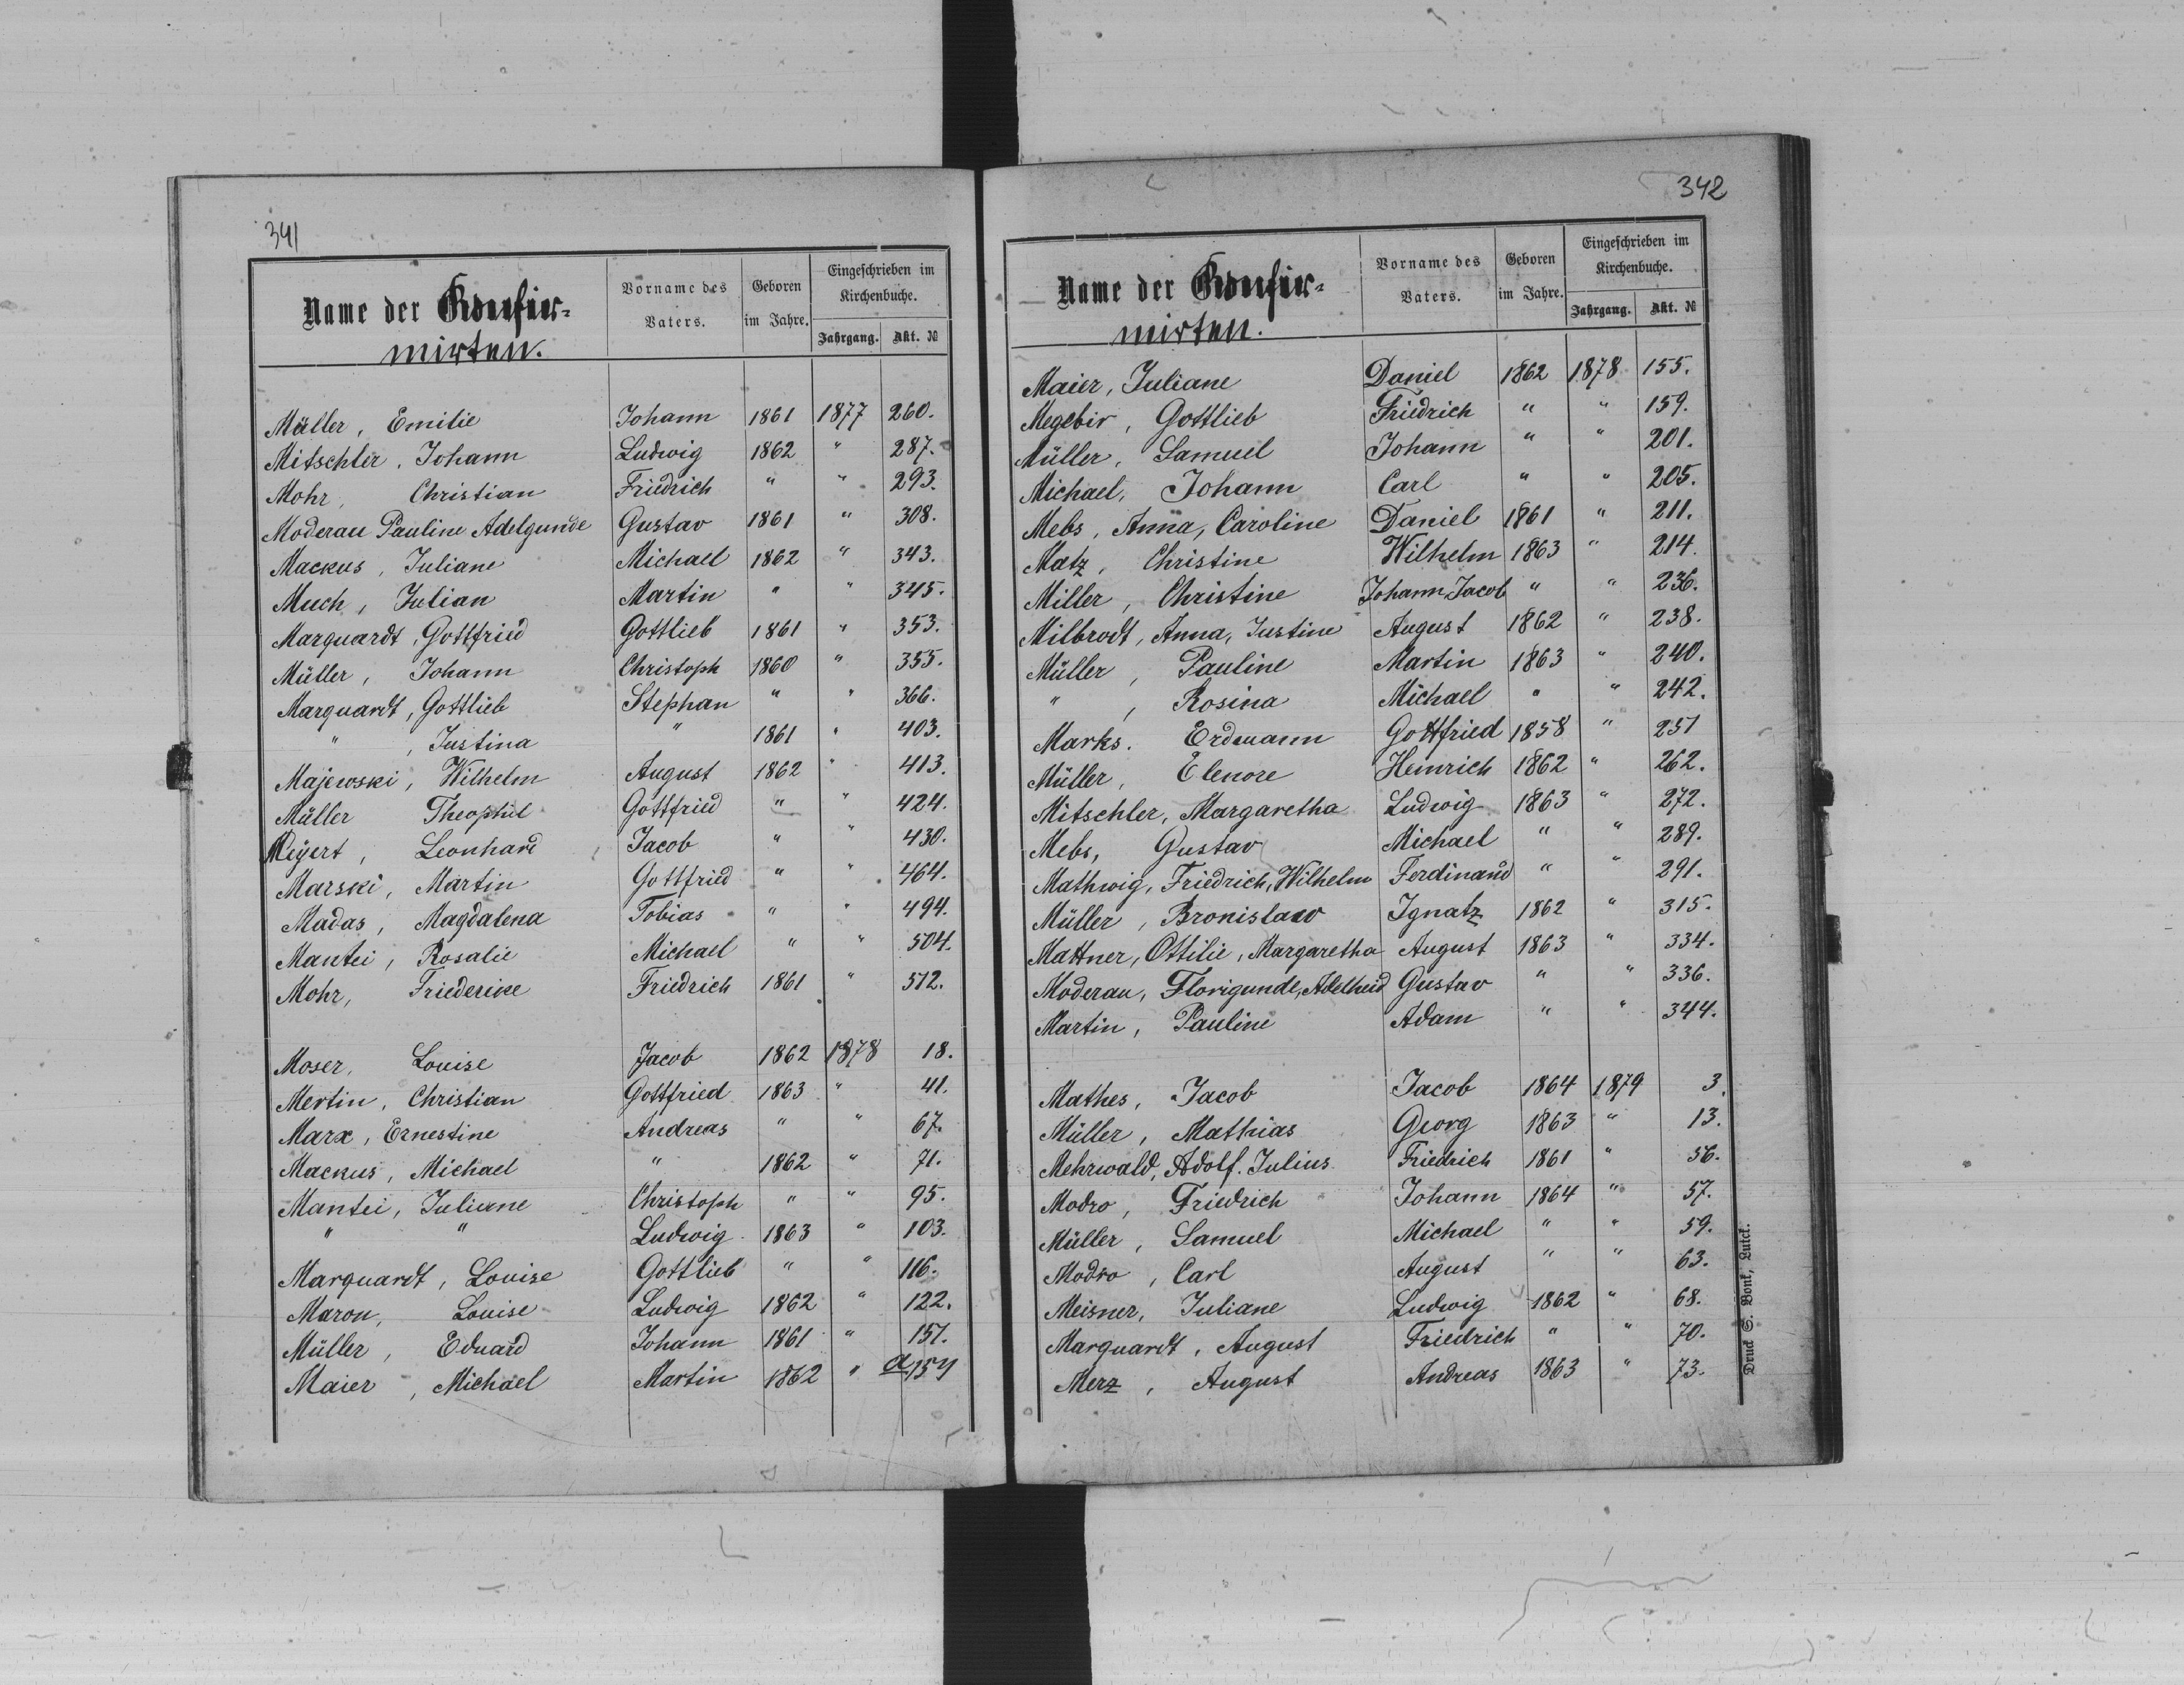 341
Name der Konfir=
mirten.
Vorname des Vaters.
Geboren im Jahre.
Eingeschrieben im Kirchenbuche.
Jahrgang. Akt. №
Müller, Emilie Johann 1861 1877 260.
Mitschler, Johann Ludwig 1862 " 287.
Mohr, Christian Friedrich " " 293.
Moderau Pauline Adelgunde Gustav 1861 " 308.
Mackus, Juliane Michael 1862 " 343.
Much, Julian Martin " " 345.
Marquardt, Gottfried Gottlieb 1861 " 353.
Müller, Johann Christoph 1860 " 355.
Marquardt, Gottlieb Stephan " " 366.
" , Justina " 1861 " 403.
Majewski, Wilhelm August 1862 " 413.
Müller Theophil Gottfried " " 424.
Meyert, Leonhard Jacob " " 430.
Marski, Martin Gottfried " " 464.
Madas, Magdalena Tobias " " 494.
Mantei, Rosalie Michael " " 504.
Mohr, Friederike Friedrich 1861 " 512.
Moser, Louise Jacob 1862 1878 18.
Mertin, Christian Gottfried 1863 " 41.
Marx, Ernestine Andreas " " 67.
Mackus, Michael " 1862 " 71.
Mantei, Juliane Christoph " " 95.
" " Ludwig 1863 " 103.
Marquardt, Louise Gottlieb " " 116.
Maron, Louise Ludwig 1862 " 122.
Müller, Eduard Johann 1861 " 151.
Maier, Michael Martin 1862 " a/154
342
Name der Konfir=
mirten.
Vorname des Vaters.
Geboren im Jahre.
Eingeschrieben im Kirchenbuche.
Jahrgang. Akt. №
Maier, Juliane Daniel 1862 1878 155.
Megebir, Gottlieb Friedrich " " 159.
Müller, Samuel Johann " " 201.
Michael, Johann Carl " " 205.
Mebs, Anna, Caroline Daniel 1861 " 211.
Matz, Christine Wilhelm 1863 " 214.
Miller, Christine Johann Jacob " " 236.
Milbrodt, Anna, Justine August 1862 " 238.
Müller, Pauline Martin 1863 " 240.
" , Rosina Michael " " 242.
Marks. Erdmann Gottfried 1858 " 251
Müller, Elenore Heinrich 1862 " 262.
Mitschler, Margaretha Ludwig 1863 " 272.
Mebs, Gustav Michael " " 289.
Mathwig, Friedrich, Wilhelm Ferdinand " " 291.
Müller, Bronislaw Ignatz 1862 " 315.
Mattner, Ottilie, Margaretha August 1863 " 334.
Moderau, Florigunde, Adelheid Gustav " " 336.
Martin, Pauline Adam " " 344.
Mathes, Jacob Jacob 1864 1879 3.
Müller, Mathias Georg 1863 " 13.
Mehrwald, Adolf. Julius Friedrich 1861 " 56.
Modro, Friedrich Johann 1864 " 57.
Müller, Samuel Michael " " 59.
Modro, Carl August " " 63.
Meisner, Juliane Ludwig 1862 " 68.
Marquardt, August Friedrich " " 70.
Merz, August Andreas 1863 " 73.
Druck S. Bonk, Lutck.